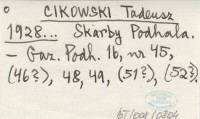 CIKOWSKI Tadeusz
1928... Skarby Podhala.
- Gaz. Podh. 16, nr 45,
(46?), 48, 49, (51?), (52?).
BT/001/0304